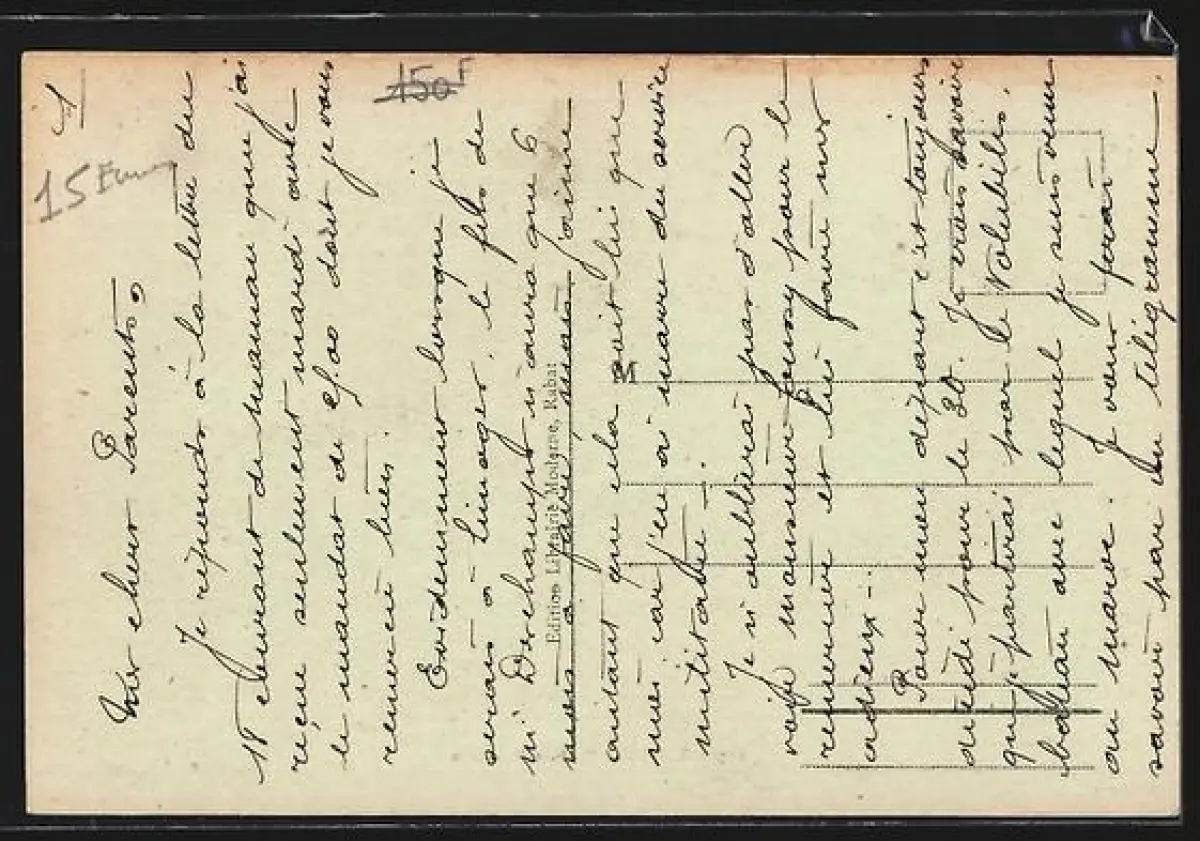 1
15 Euros
150 F
Mes chers Parents,
Je réponds à la lettre du
18 courant de maman que j'ai
reçue seulement mardi avec
le mandat de 25.00 dont je vous
remercie bien.
Evidemment lorsque je
serais à Limoges, le fils de
Mr Deschamps n'aura que 6
mois à faire, mais j'aime
autant que cela soit lui que
moi car j'en ai marre du service
militaire.
Je n'oublierai pas d'aller
voir monsieur pour le
remercier et lui faire mes
adieux.
Pour mon départ c'est toujours
décidé pour le 30. Je crois savoir
que je partirai par le Volubilis,
bateau avec lequel je suis venu
au Maroc. Je vous ferai
savoir par un télégramme.
Edition Librairie Moderne, Rabat